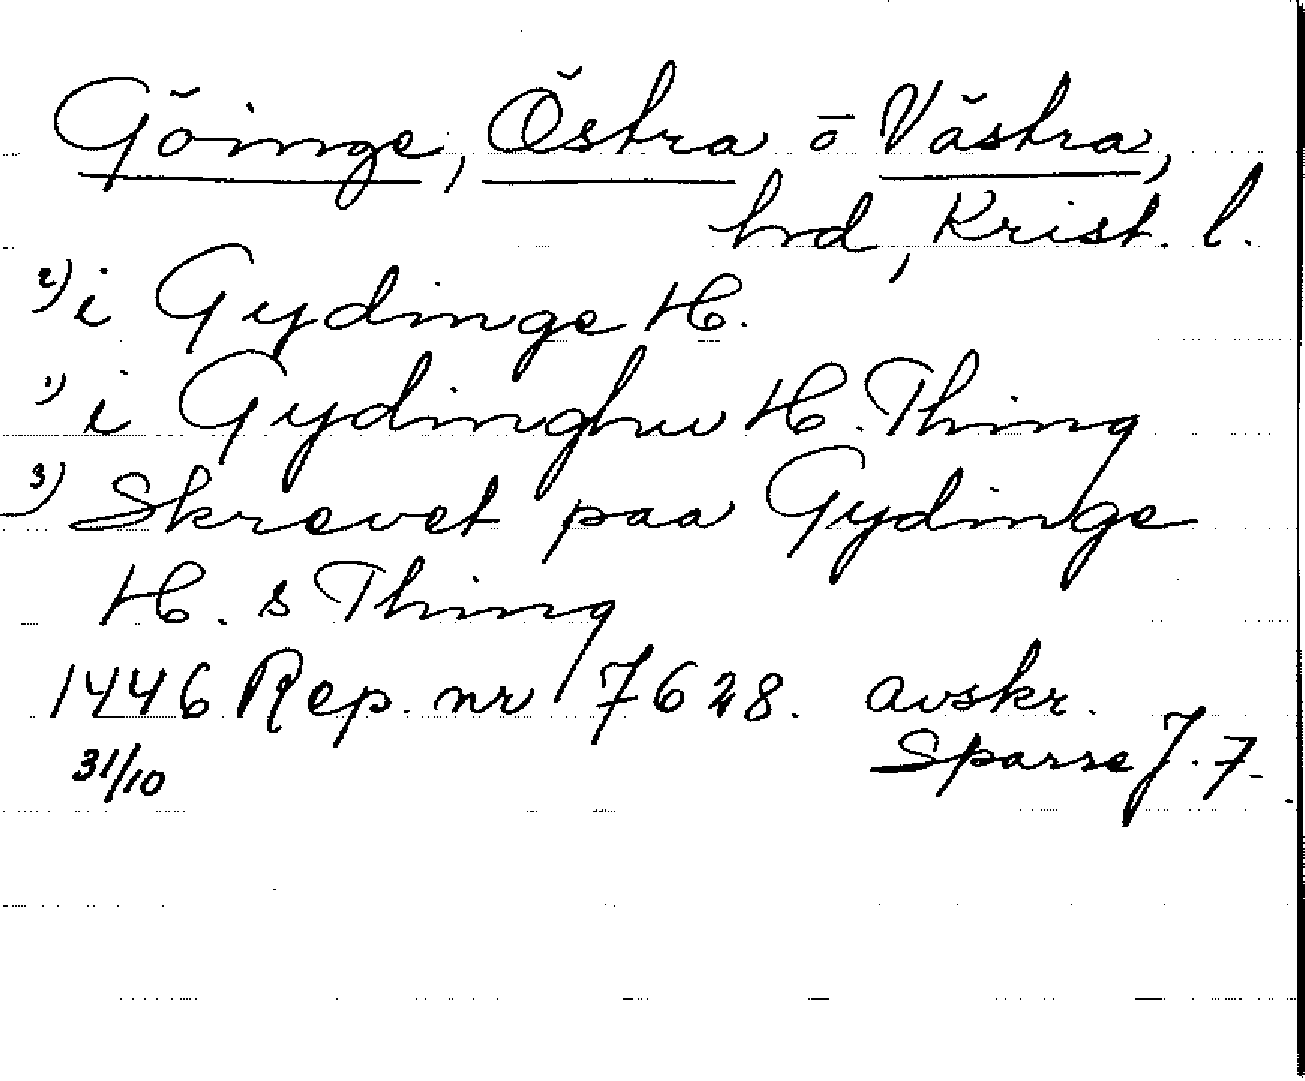 Göinge, Östra o Västra,
hrd, Krist. l.
2) i Gydinge H.
1) i Gydinghw H. Thing
3) Skrevet paa Gydinge
H. s Thing
1446 Rep. nr 7628. avskr.
31/10 Sparre J. F.